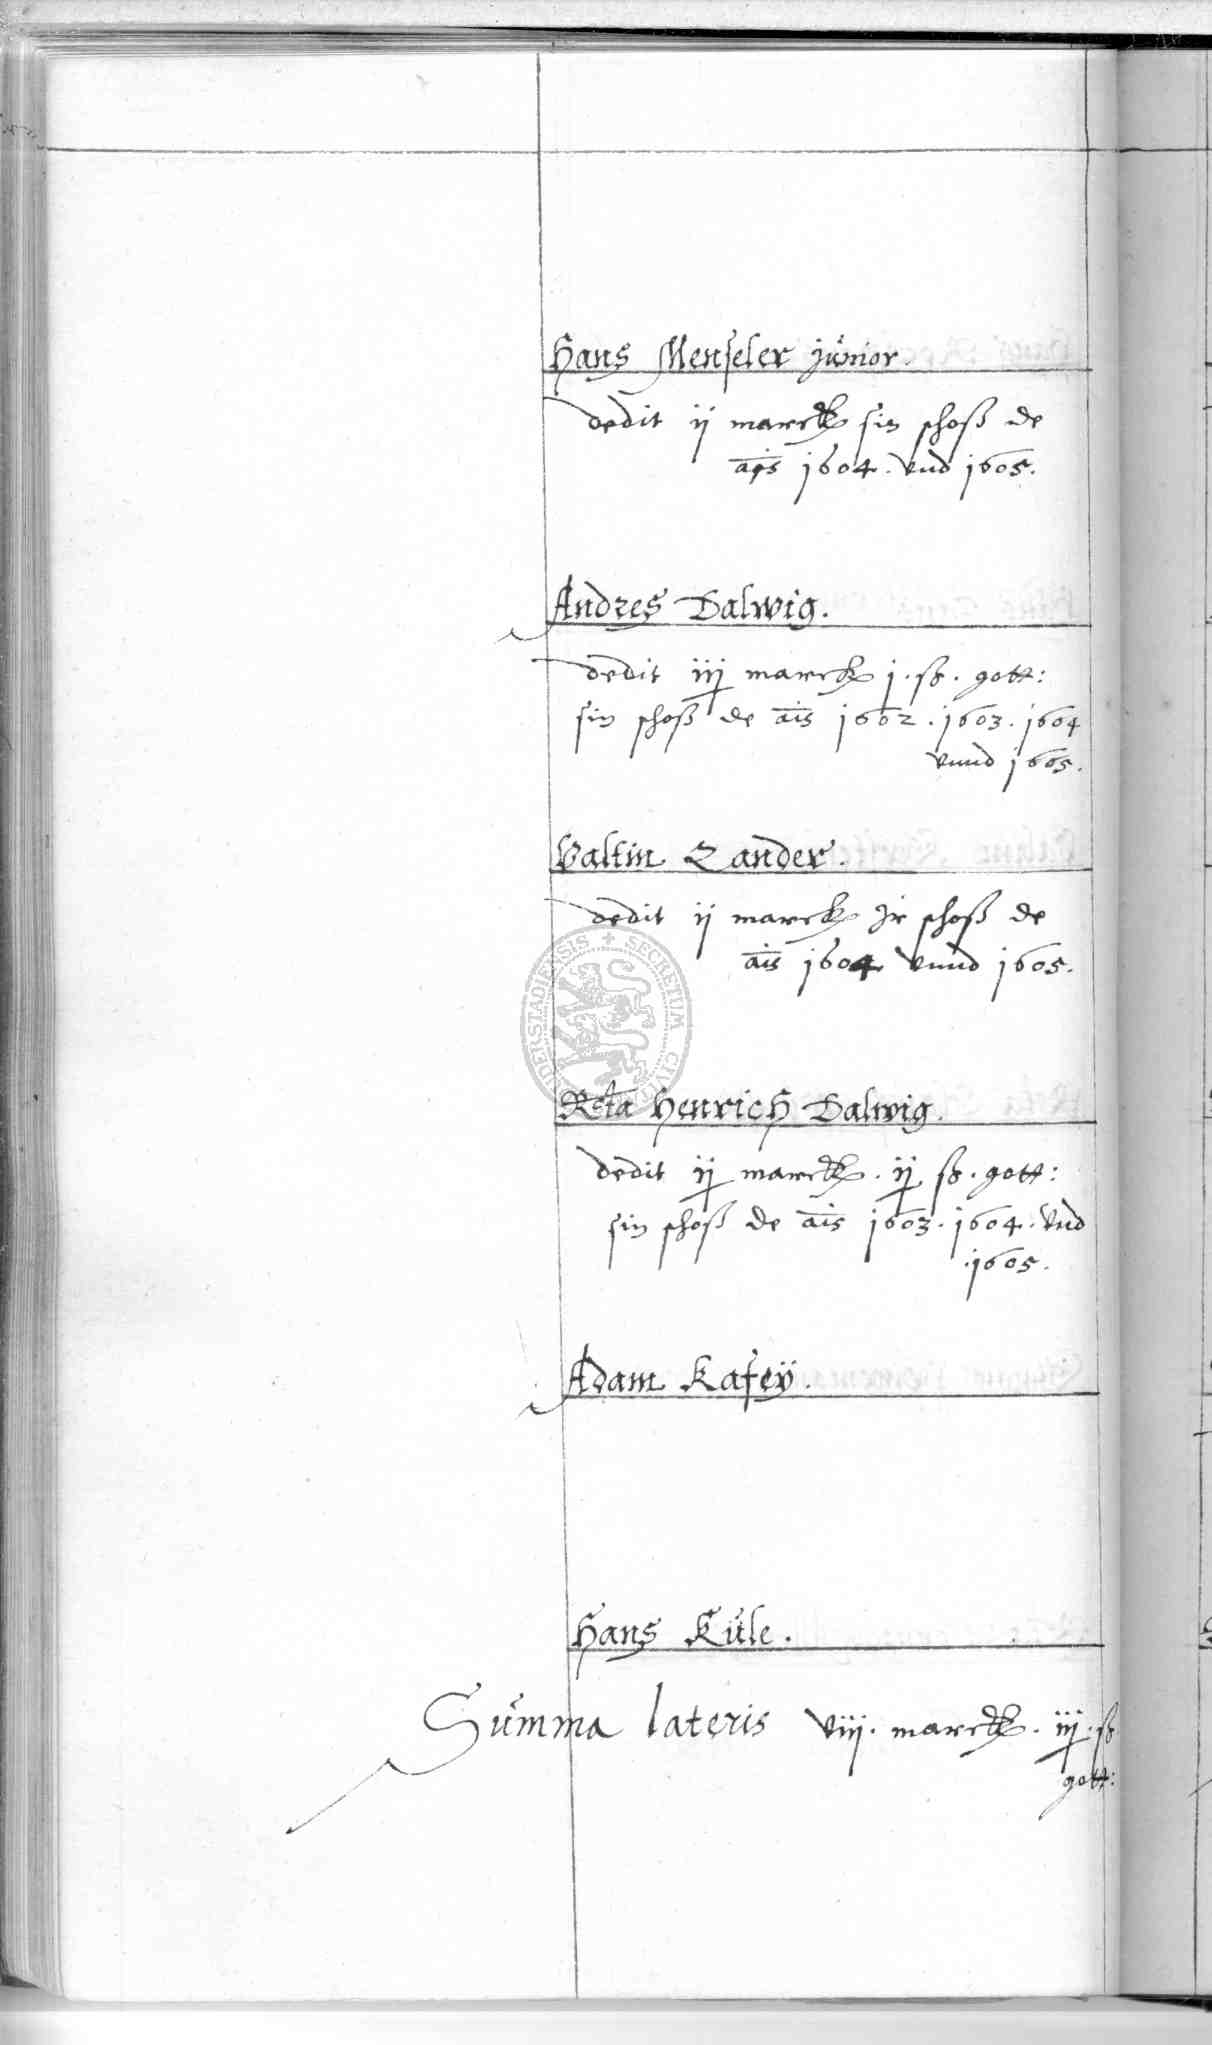 Hans Menseler junior.
dedit ij marck sin schoß de
ais 1604. vnd 1605.
Andres Dalwig.
dedit iij marck j. ß. gott:
sin schoß de ais 1602. 1603. 1604
vnnd 1605.
Valtin Zander.
dedit ij marck Jr schoß de
ais 1604 vnnd 1605.
SECRETUM CIVI DERSTADIENSIS
Rcta Henrich Dalwig.
dedit ij marck. ij ß. gott:
sin schoß de ais 1603. 1604. vnd
1605.
Adam Kafeÿ.
Hans Kule.
Summa lateris viij. marck. iij. ß
gott: